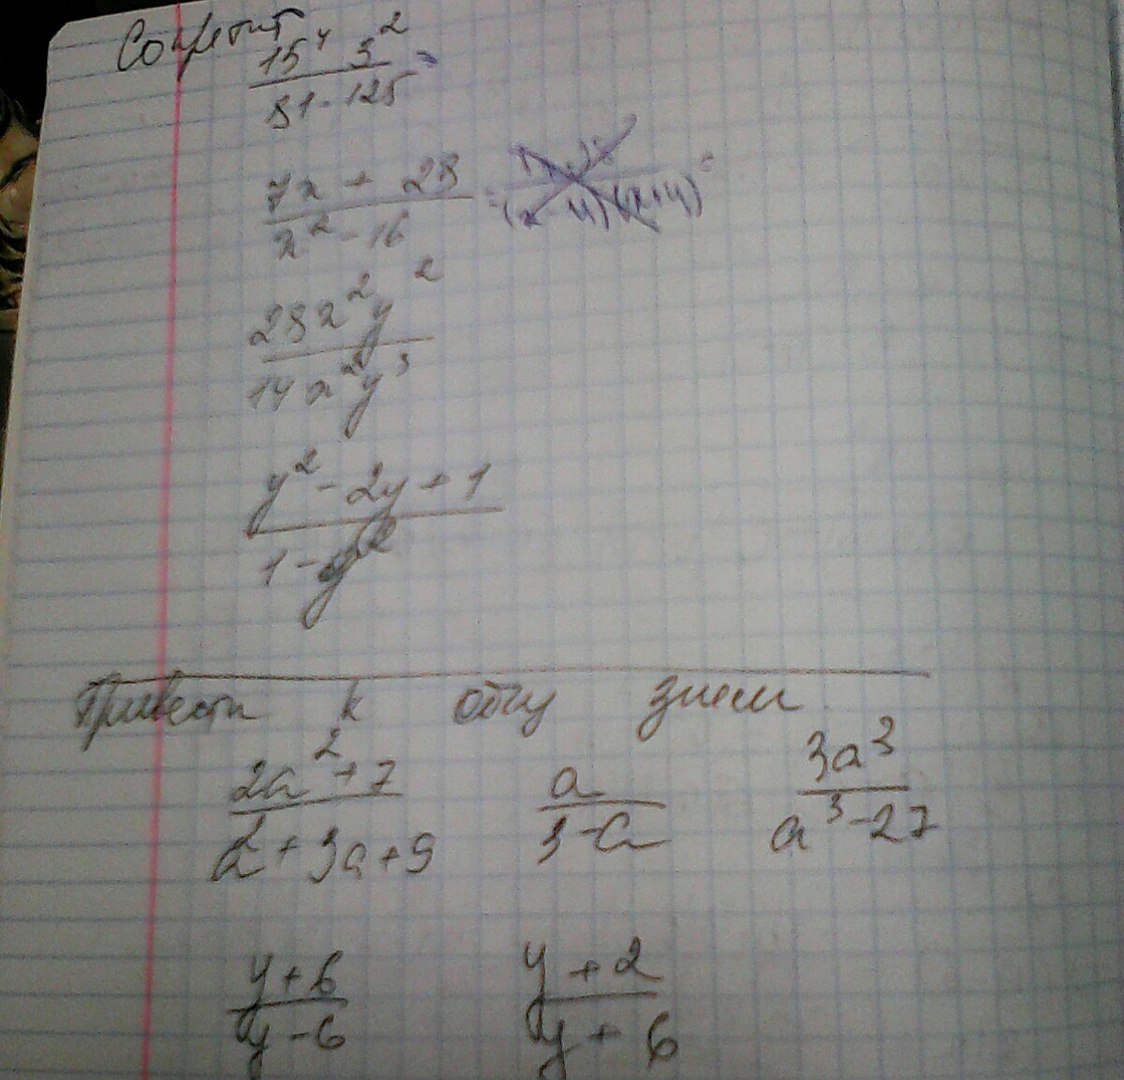 Сократит
15⁴ 3²
81·125 =
7x + 28
x² - 16
= (x - 4)(x+4) =
28x²y²
14x²y³
y² - 2y + 1
1 - y²
Привести к общ знам
2a² + 7 a 3a³
a² + 3a + 9 3 - a a³ - 27
y + 6 y + 2
y - 6 y + 6